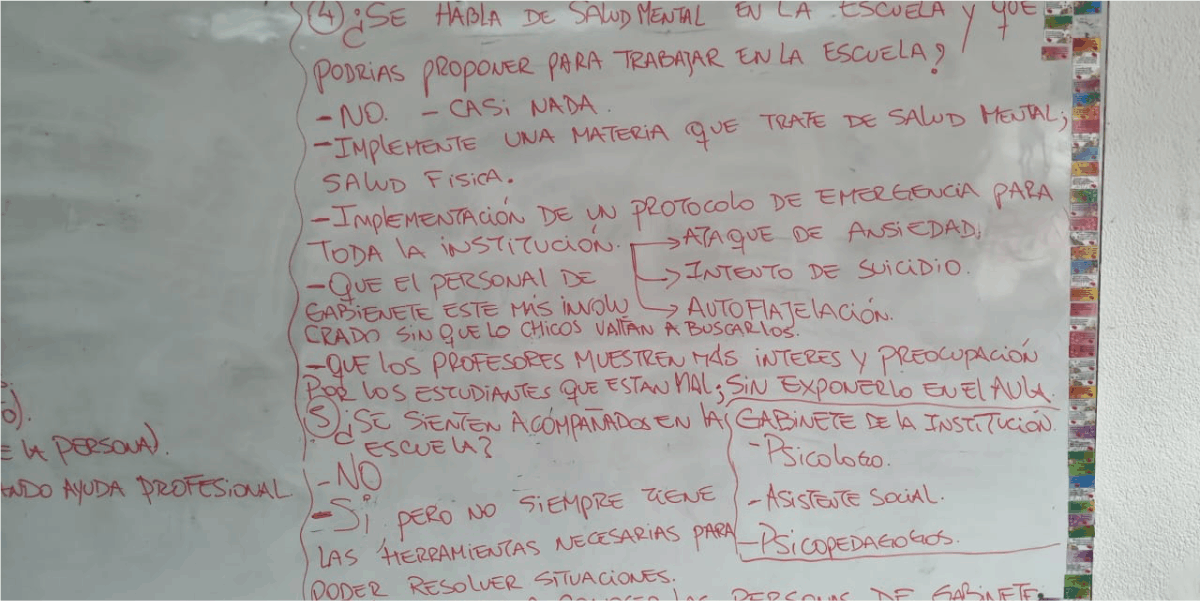 (4) ¿SE HABLA DE SALUD MENTAL EN LA ESCUELA Y QUE
PODRIAS PROPONER PARA TRABAJAR EN LA ESCUELA?
- NO. - CASI NADA.
- IMPLEMENTE UNA MATERIA QUE TRATE DE SALUD MENTAL;
SALUD FISICA.
- IMPLEMENTACIÓN DE UN PROTOCOLO DE EMERGENCIA PARA
TODA LA INSTITUCIÓN. → ATAQUE DE ANSIEDAD.
- QUE EL PERSONAL DE → INTENTO DE SUICIDIO.
GABIENETE ESTE MÁS INVOLU → AUTOFLAJELACIÓN.
CRADO SIN QUE LO CHICOS VALLAN A BUSCARLOS.
- QUE LOS PROFESORES MUESTREN MÁS INTERES Y PREOCUPACIÓN
POR LOS ESTUDIANTES QUE ESTAN MAL; SIN EXPONERLO EN EL AULA.
(5) ¿SE SIENTEN ACOMPAÑADOS EN LA
ESCUELA?
- NO
- SI PERO NO SIEMPRE TIENE
LAS HERRAMIENTAS NECESARIAS PARA
PODER RESOLVER SITUACIONES.
LAS PERSONAS DE GABINETE.
GABINETE DE LA INSTITUCIÓN.
- PSICOLOGO.
- ASISTENTE SOCIAL.
- PSICOPEDAGOGOS.
E LA PERSONA).
ENDO AYUDA PROFESIONAL